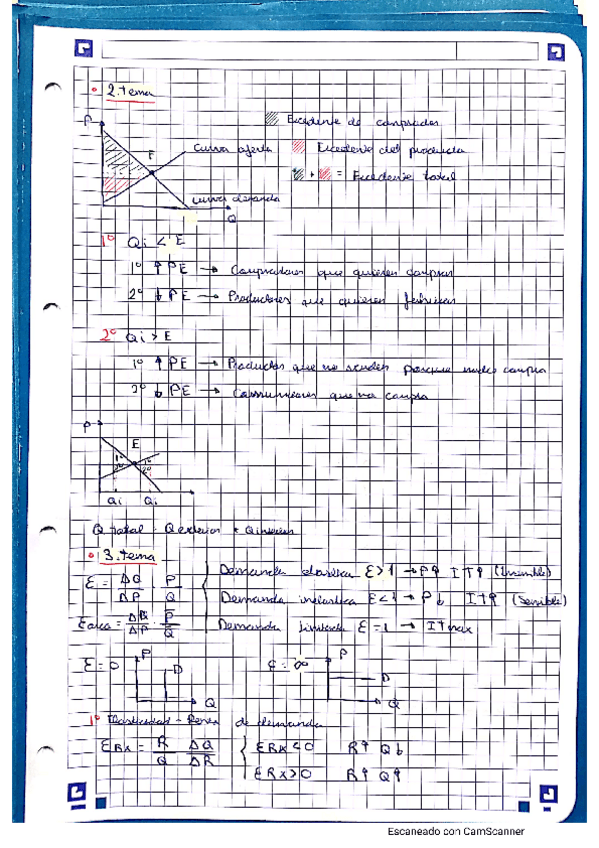 2. tema
P
Excedente de comprador
E
curva oferta
Excedente del productor
+ = Excedente total
curva demanda
Q
1º Qi < E
1º ↑ PE → Compradores que quieren comprar
2º ↓ PE → Productores que quieren fabricar
2º Qi > E
1º ↑ PE → Productos que no venden porque nadie compra
2º ↓ PE → Consumidores que no compra
P
E
1º 1º
2º 2º
Qi Qi
Q total
• 3. tema
Ɛ = ΔQ/ΔP · P/Q
Demanda elastica Ɛ>1 → P↑ IT↑
Demanda inelastica Ɛ<1 → P↓ IT↑ (Sensible)
Ɛarco = ΔQ/ΔP · P̅/Q̅
Demanda Ɛ=1 → ITmax
Ɛ=0 P D Q
Ɛ=∞ P D Q
1º Elasticidad - Renta de demanda
ƐRx = R/Q ΔQ/ΔR
ƐRx<0 R↑ Q↓
ƐRx>0 R↑ Q↑
Escaneado con CamScanner